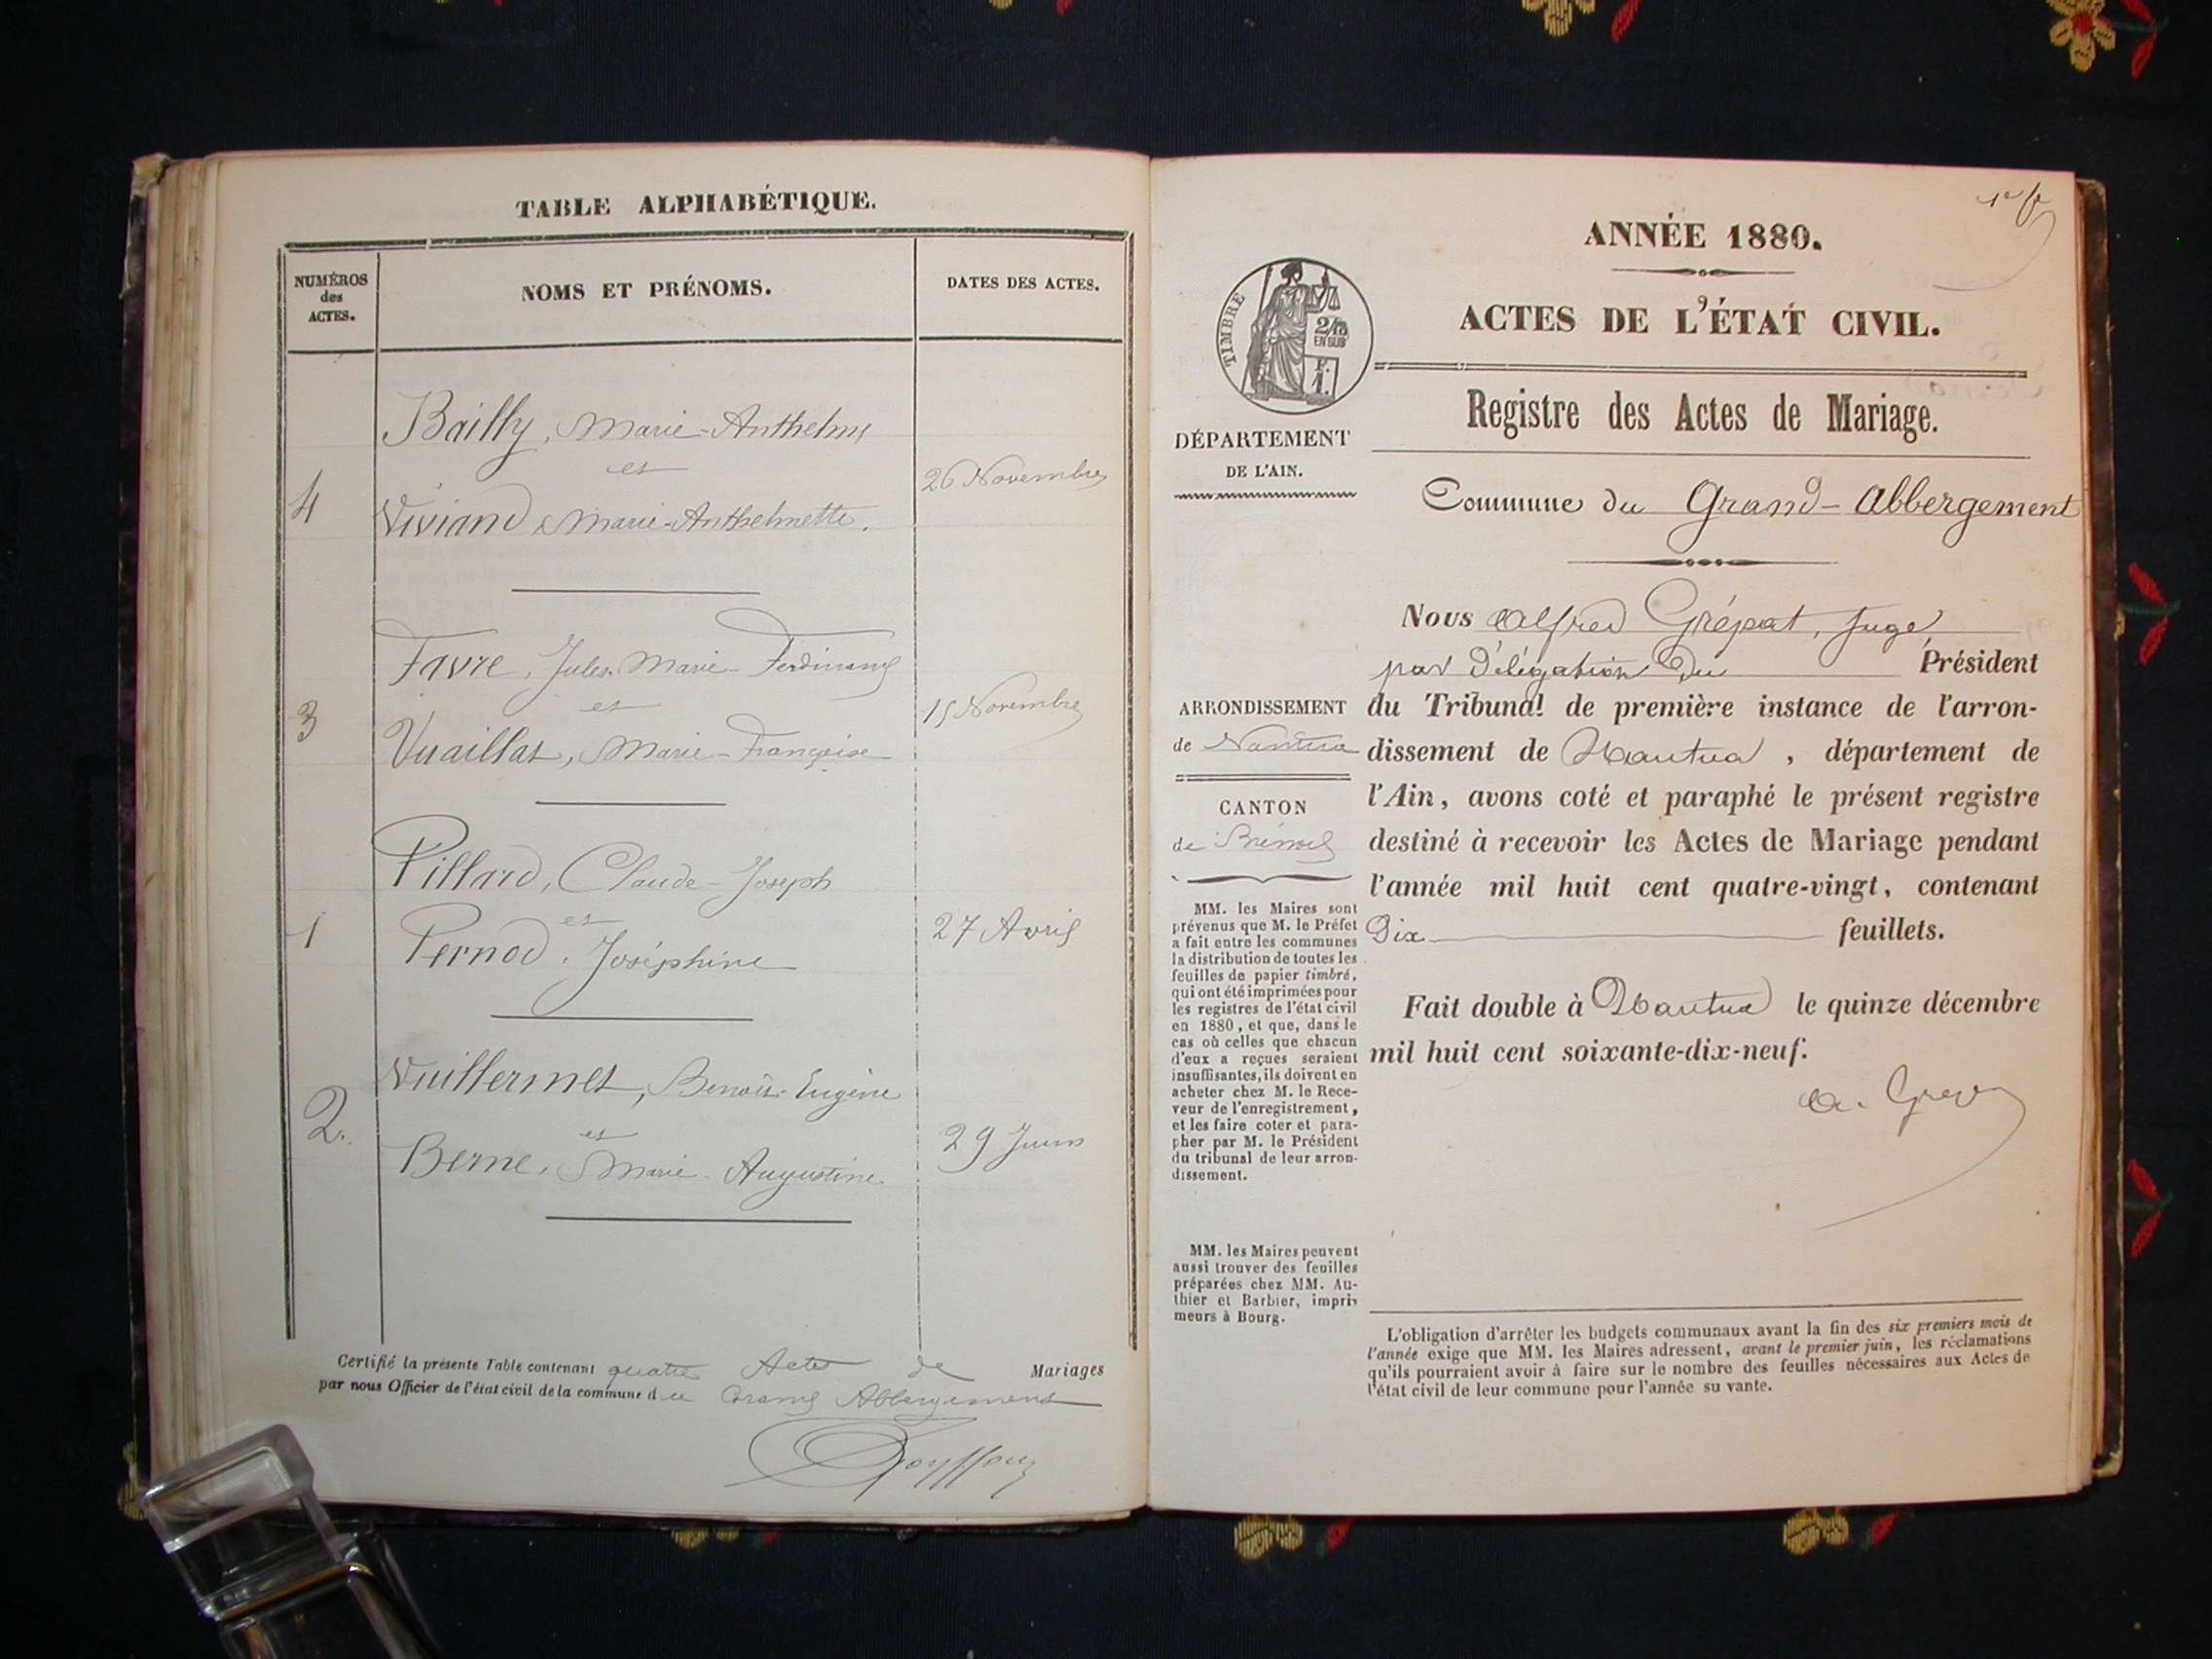 TABLE ALPHABÉTIQUE.
NUMÉROS
des
ACTES.
NOMS ET PRÉNOMS.
DATES DES ACTES.
Bailly, Marie-Anthelme
et
4
26 Novembre
Viviand Marie-Anthelmette.
Favre, Jules Marie Ferdinand
et
3
15 Novembre
Vuaillat, Marie-Françoise
Pillard, Claude-Joseph
et
1
27 Avril
Pernod, Joséphine
Vuillermet, Benoît-Eugène
2.
et
29 Juin
Berne, Marie-Augustine
Certifié la présente Table contenant quatre Actes de Mariages
par nous Officier de l'état civil de la commune du Grand Abbergement
1er f
ANNÉE 1880.
ACTES DE L'ÉTAT CIVIL.
TIMBRE
2/10
EN SUS
F.
1.
Registre des Actes de Mariage.
DÉPARTEMENT
DE L'AIN.
Commune du Grand-Abbergement
Nous Alfred Grépat, Juge
par Délégation du Président
du Tribunal de première instance de l'arron-
dissement de Nantua, département de
l'Ain, avons coté et paraphé le présent registre
destiné à recevoir les Actes de Mariage pendant
l'année mil huit cent quatre-vingt, contenant
Dix feuillets.
Fait double à Nantua le quinze décembre
mil huit cent soixante-dix-neuf.
ARRONDISSEMENT
de Nantua
CANTON
de Brénod
MM. les Maires sont
prévenus que M. le Préfet
a fait entre les communes
la distribution de toutes les
feuilles de papier timbré,
qui ont été imprimées pour
les registres de l'état civil
en 1880, et que, dans le
cas où celles que chacun
d'eux a reçues seraient
insuffisantes, ils doivent en
acheter chez M. le Rece-
veur de l'enregistrement,
et les faire coter et para-
pher par M. le Président
du tribunal de leur arron-
dissement.
MM. les Maires peuvent
aussi trouver des feuilles
préparées chez MM. Au-
thier et Barbier, impri-
meurs à Bourg.
L'obligation d'arrêter les budgets communaux avant la fin des six premiers mois de
l'année exige que MM. les Maires adressent, avant le premier juin, les réclamations
qu'ils pourraient avoir à faire sur le nombre des feuilles nécessaires aux Actes de
l'état civil de leur commune pour l'année su vante.